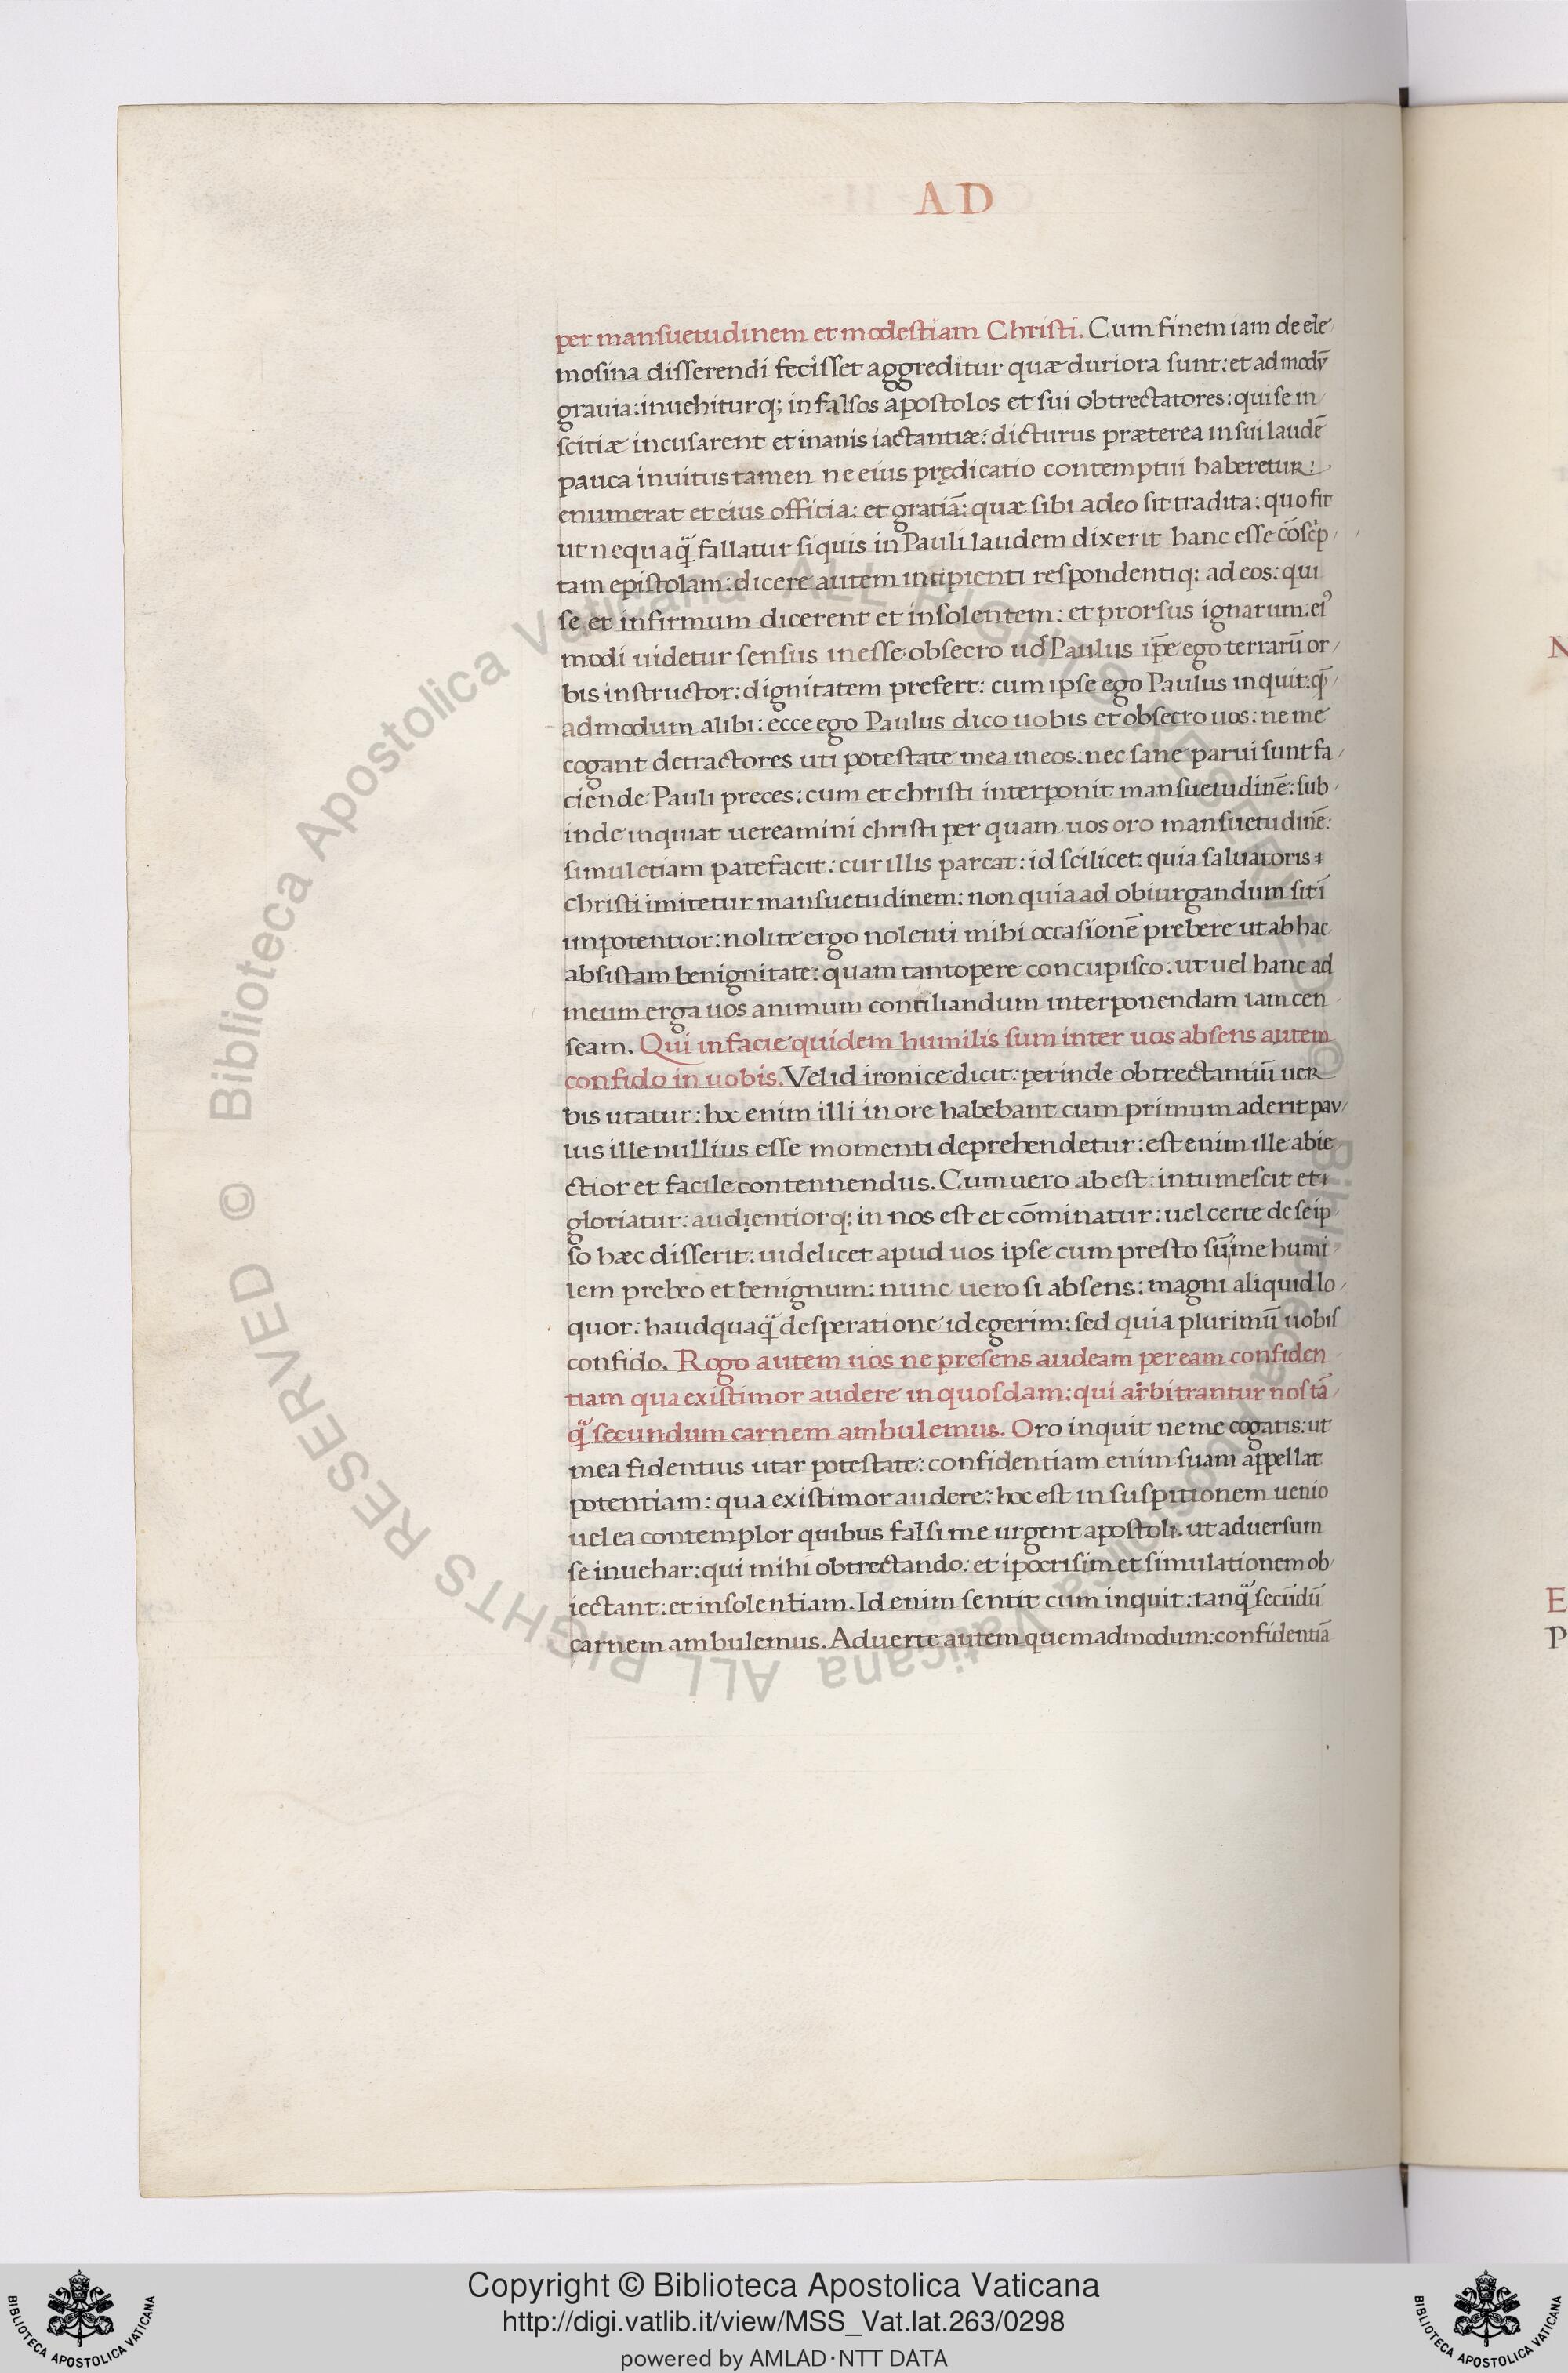 AD
per mansuetudinem et modestiam Christi. Cum finem iam de ele
mosina disserendi fecisset aggreditur quæ duriora sunt: et ad modū
grauia: inuehitur q; in falsos apostolos et sui obtrectatores: qui se in
scitiæ incusarent et inanis iactantiæ: dicturus præterea in sui laudē
pauca inuitus tamen ne eius prędicatio contemptui haberetur:
enumerat et eius officia: et gratiā: quæ sibi adeo sit tradita: quo fit
ut nequaq̃ fallatur siquis in Pauli laudem dixerit hanc esse cōscp
tam epistolam: dicere autem incipienti respondenti q: ad eos: qui
se et infirmum dicerent et insolentem: et prorsus ignarum: ei9
modi uidetur sensus inesse obsecro uos Paulus ip̄e ego terrarū or
bis instructor: dignitatem prefert: cum ipse ego Paulus inquit: q̄
admodum alibi: ecce ego Paulus dico uobis et obsecro uos: ne me
cogant detractores uti potestate mea in eos: nec sane parui sunt fa
ciende Pauli preces: cum et christi interponit mansuetudinē: sub
inde inquiat uereamini christi per quam uos oro mansuetudinē:
simul etiam patefacit: cur illis parcat: id scilicet: quia saluatoris
christi imitetur mansuetudinem: non quia ad obiurgandum sit ī
impotentior: nolite ergo nolenti mihi occasionē prebere ut ab hac
absistam benignitate: quam tantopere concupisco: ut uel hanc ad
meum erga uos animum conciliandum interponendam iam cen
seam. Qui in facie quidem humilis sum inter uos absens autem
confido in uobis. Vel id ironice dicit: perinde obtrectantiū uer
bis utatur: hoc enim illi in ore habebant cum primum aderit pau
lus ille nullius esse momenti deprehendetur: est enim ille abie
ctior et facile contennendus. Cum uero abest: intumescit et
gloriatur: audientior q; in nos est et cōminatur: uel certe de seip
so hæc disserit: uidelicet apud uos ipse cum presto sū me humi
lem prebeo et benignum: nunc uero si absens: magni aliquid lo
quor: haudquaq̃ desperatione id egerim: sed quia plurimū uobis
confido. Rogo autem uos ne presens audeam per eam confiden
tiam qua existimor audere in quosdam: qui arbitrantur nos tā
q̃ secundum carnem ambulemus. Oro inquit ne me cogatis: ut
mea fidentius utar potestate: confidentiam enim suam appellat
potentiam: qua existimor audere: hoc est in suspitionem uenio
uel ea contemplor quibus falsi me urgent apostoli. ut aduersum
se inuehar: qui mihi obtrectando: et ipocrisim et simulationem ob
iectant: et insolentiam. Id enim sentit cum inquit: tanq̃ secūdū
carnem ambulemus. Aduerte autem quemadmodum: confidentiā
N
E
P
© Biblioteca Apostolica Vaticana ALL RIGHTS RESERVED
© Biblioteca Apostolica Vaticana ALL RIGHTS RESERVED
Copyright © Biblioteca Apostolica Vaticana
http://digi.vatlib.it/view/MSS_Vat.lat.263/0298
powered by AMLAD·NTT DATA
BIBLIOTECA APOSTOLICA VATICANA
BIBLIOTECA APOSTOLICA VATICANA